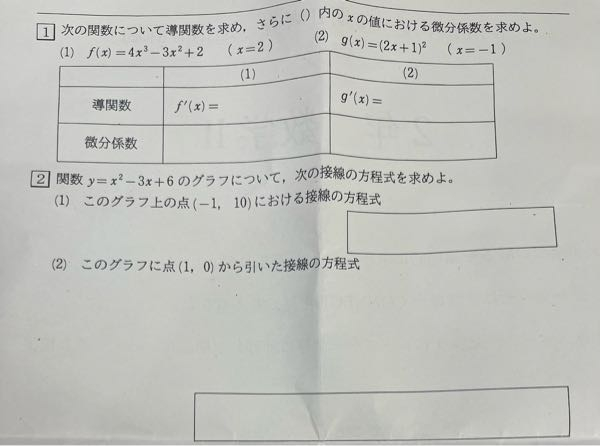 1 次の関数について導関数を求め,さらに()内の x の値における微分係数を求めよ。
(1) f(x)=4x³−3x²+2 (x=2) (2) g(x)=(2x+1)² (x=−1)
(1) (2)
導関数 f′(x)= g′(x)=
微分係数
2 関数 y=x²−3x+6 のグラフについて,次の接線の方程式を求めよ。
(1) このグラフ上の点(−1, 10)における接線の方程式
(2) このグラフに点(1, 0)から引いた接線の方程式